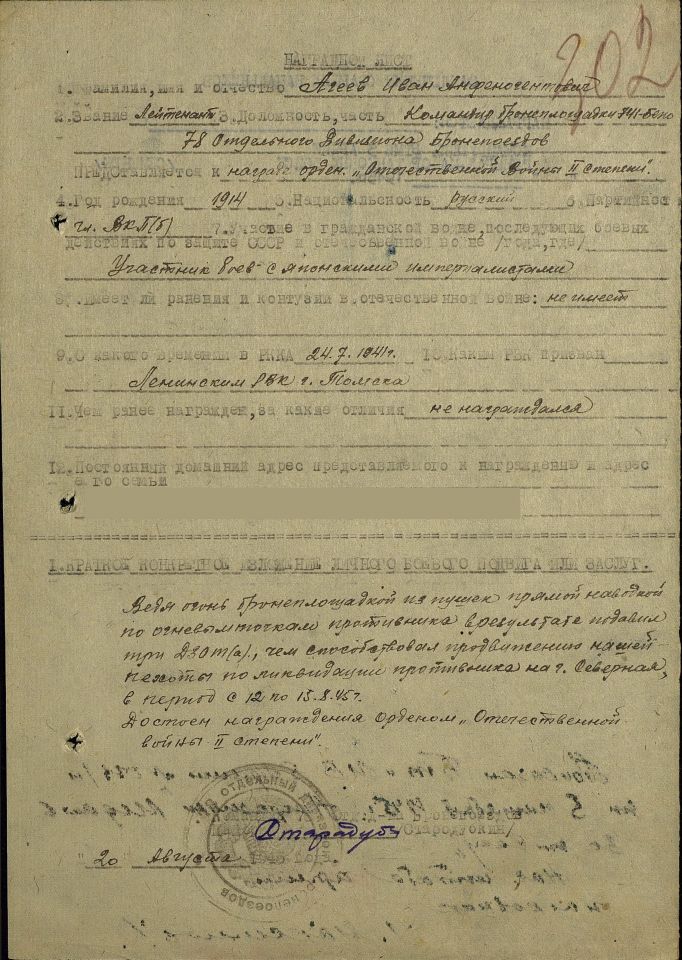 202
НАГРАДНОЙ ЛИСТ
1. Фамилия, имя и отчество Агеев Иван Анфеногентович
2. Звание Лейтенант 3. Должность, часть Командир бронеплощадки 741-бепо
78 Отдельного Дивизиона Бронепоездов
ПРЕДСТАВЛЯЕТСЯ к награде орден. „Отечественной Войны II степени".
4. Год рождения 1914 5. Национальность русский 6. Партийност
чл. ВКП(б) 7. Участие в гражданской войне, последующих боевых
действиях по защите СССР и отечественной войне /года, где/
Участник боев с японскими империалистами
8. Имеет ли ранения и контузии в отечественной войне: не имеет
9. С какого времени в РККА 24.7.1941г. 10. Каким РВК призван
Ленинским РВК г. Томска
11. Чем ранее награжден, за какие отличия не награждался
12. Постоянный домашний адрес представляемого к награждению и адрес
его семьи
I. КРАТКОЕ КОНКРЕТНОЕ ИЗЛОЖЕНИЕ ЛИЧНОГО БОЕВОГО ПОДВИГА ИЛИ ЗАСЛУГ.
Ведя огонь бронеплощадкой из пушек прямой наводкой
по огневым точкам противника в результате подавил
три ДЗОТ(а)., чем способствовал продвижению нашей
пехоты по ликвидации противника на г. Северная,
в период с 12 по 15.8.45г.
Достоен награждения орденом „Отечественной
войны II степени".
Стародубкин/
"20 Августа 1945 года.